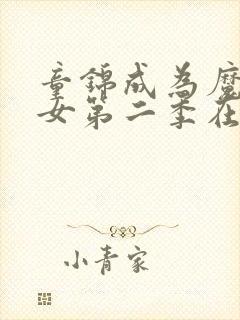 童锦成为魔
女第二季在
小青家